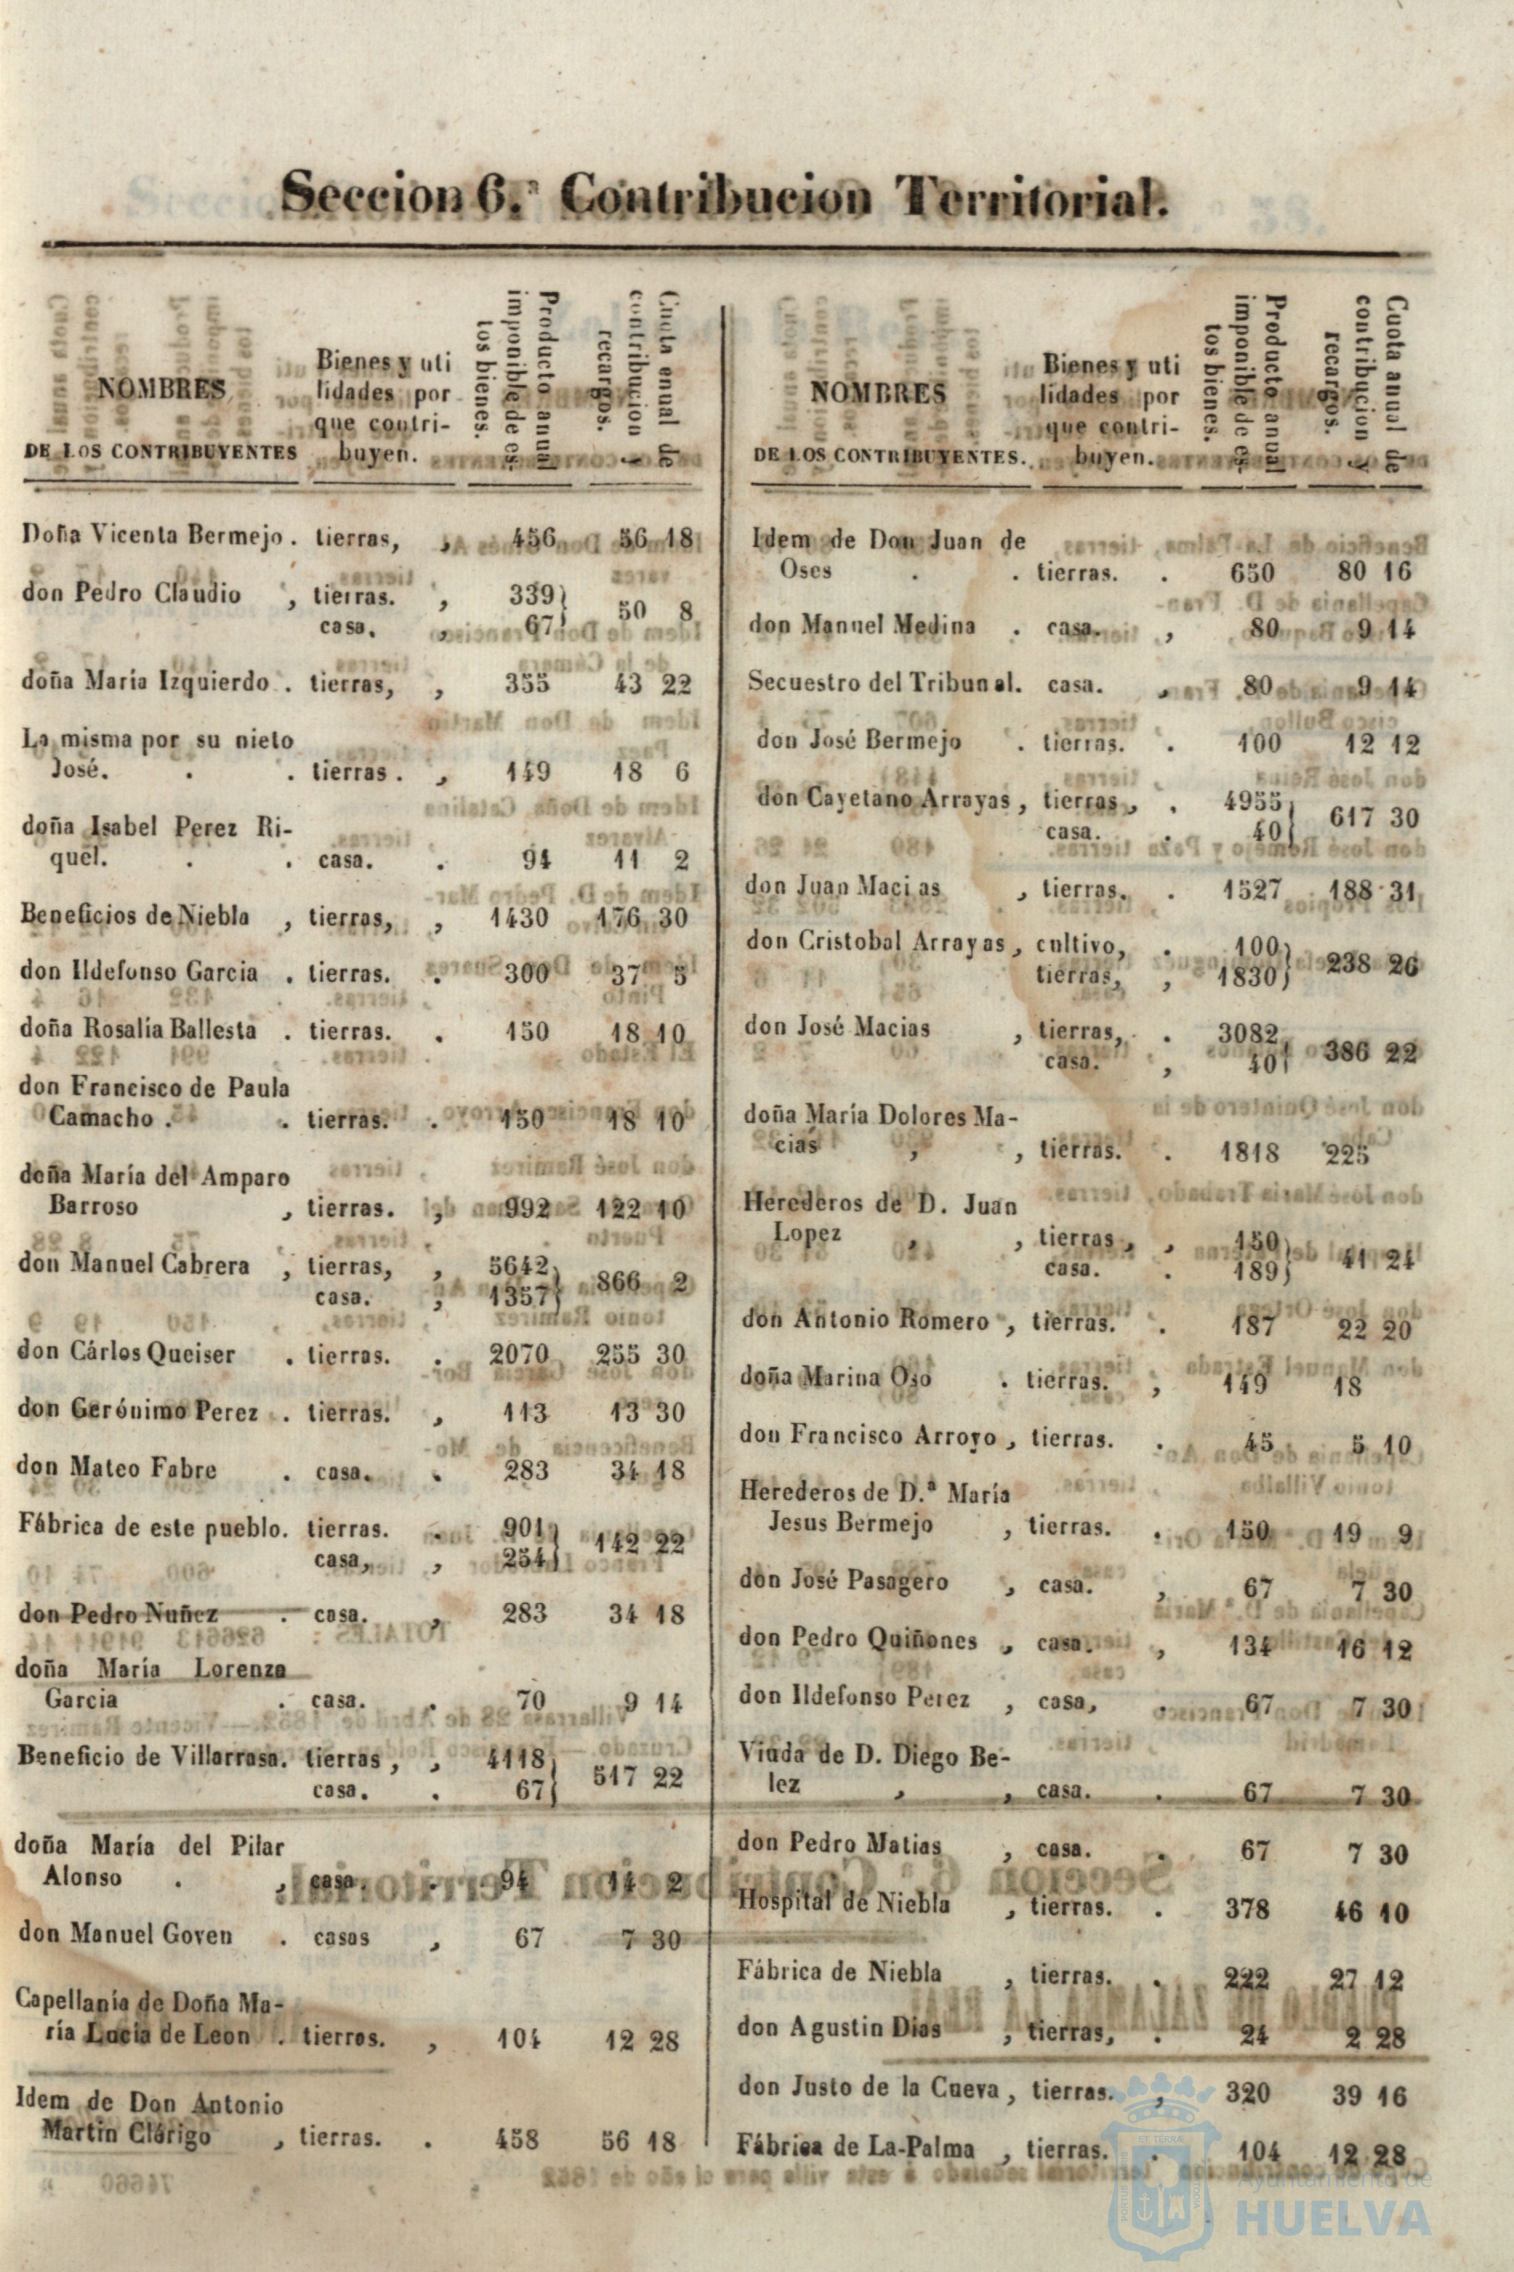 Seccion 6.ª Contribucion Territorial.
NOMBRES
DE LOS CONTRIBUYENTES
Bienes y uti
lidades por
que contri-
buyen.
Producto anual
imponible de es-
tos bienes.
Cuota anual de
contribucion y
recargos.
Doña Vicenta Bermejo . tierras, , 456 56 18
don Pedro Claudio , tierras. , 339 } 50 8
casa. , 67 }
doña María Izquierdo . tierras, , 355 43 22
La misma por su nieto
José. . . tierras . , 149 18 6
doña Isabel Perez Ri-
quel. . . casa. . 94 11 2
Beneficios de Niebla , tierras, , 1430 176 30
don Ildefonso Garcia . tierras. . 300 37 5
doña Rosalía Ballesta . tierras. . 150 18 10
don Francisco de Paula
Camacho . . tierras. . 150 18 10
doña María del Amparo
Barroso , tierras. , 992 122 10
don Manuel Cabrera , tierras, , 5642 } 866 2
casa. , 1357 }
don Cárlos Queiser . tierras. . 2070 255 30
don Gerónimo Perez . tierras. , 113 13 30
don Mateo Fabre . casa. . 283 34 18
Fábrica de este pueblo. tierras. . 901 } 142 22
casa, , 254 }
don Pedro Nuñez . casa. , 283 34 18
doña María Lorenza
Garcia . casa. . 70 9 14
Beneficio de Villarrasa. tierras , , 4118 } 517 22
casa. . 67 }
doña María del Pilar
Alonso . , casa. . 94 11 2
don Manuel Goven . casas , 67 7 30
Capellanía de Doña Ma-
ría Lucia de Leon . tierras. , 104 12 28
Idem de Don Antonio
Martin Clérigo , tierras. . 458 56 18
NOMBRES
DE LOS CONTRIBUYENTES.
Bienes y uti
lidades por
que contri-
buyen.
Producto anual
imponible de es-
tos bienes.
Cuota anual de
contribucion y
recargos.
Idem de Don Juan de
Oses . . tierras. . 650 80 16
don Manuel Medina . casa. , 80 9 14
Secuestro del Tribunal. casa. , 80 9 14
don José Bermejo . tierras. . 100 12 12
don Cayetano Arrayas , tierras , . 4955 } 617 30
casa. . 40 }
don Juan Macias , tierras. . 1527 188 31
don Cristobal Arrayas , cultivo, . 100 } 238 26
tierras, , 1830 }
don José Macias , tierras, . 3082 } 386 22
casa. , 40 }
doña María Dolores Ma-
cias , , tierras. . 1818 225
Herederos de D. Juan
Lopez , , tierras , , 150 } 41 24
casa. . 189 }
don Antonio Romero , tierras. . 187 22 20
doña Marina Oso . tierras. , 149 18
don Francisco Arroyo , tierras. . 45 5 10
Herederos de D.ª María
Jesus Bermejo , tierras. . 150 19 9
don José Pasagero , casa. , 67 7 30
don Pedro Quiñones , casa. , 134 16 12
don Ildefonso Perez , casa, . 67 7 30
Viuda de D. Diego Be-
lez , , casa. . 67 7 30
don Pedro Matias , casa. . 67 7 30
Hospital de Niebla , tierras. . 378 46 10
Fábrica de Niebla , tierras. . 222 27 12
don Agustin Dias , tierras, . 24 2 28
don Justo de la Cueva , tierras. , 320 39 16
Fábrica de La-Palma , tierras. . 104 12 28
Ayuntamiento de
HUELVA